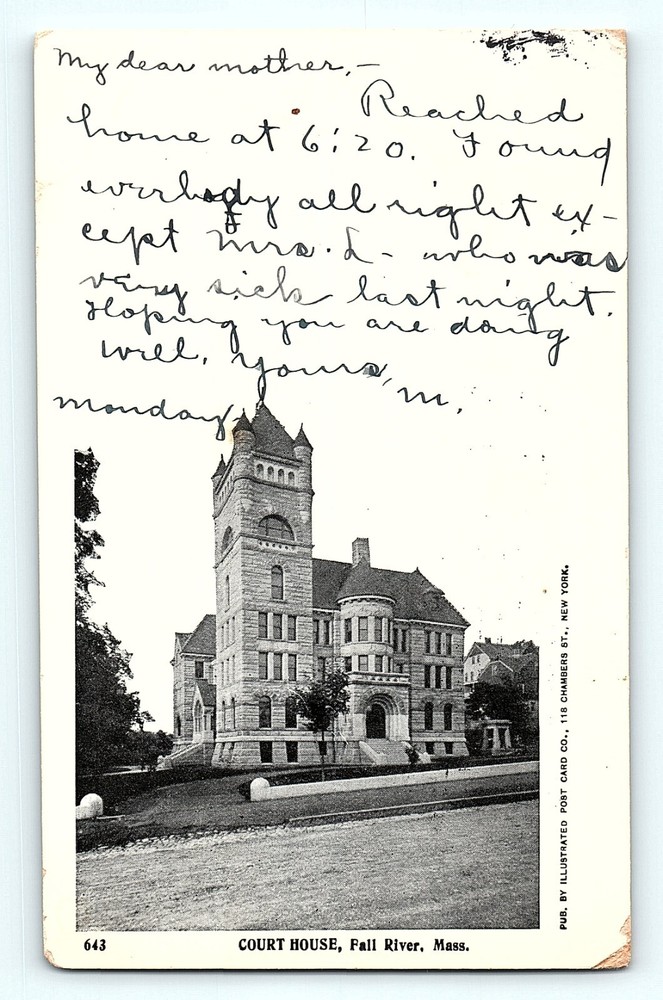 My dear mother,—
Reached
home at 6:20. Found
everbody all right ex-
cept Mrs. L - who was
very sick last night.
Hoping you are doing
well. Yours, M.
Monday
643
COURT HOUSE, Fall River, Mass.
PUB. BY ILLUSTRATED POST CARD CO., 118 CHAMBERS ST., NEW YORK.